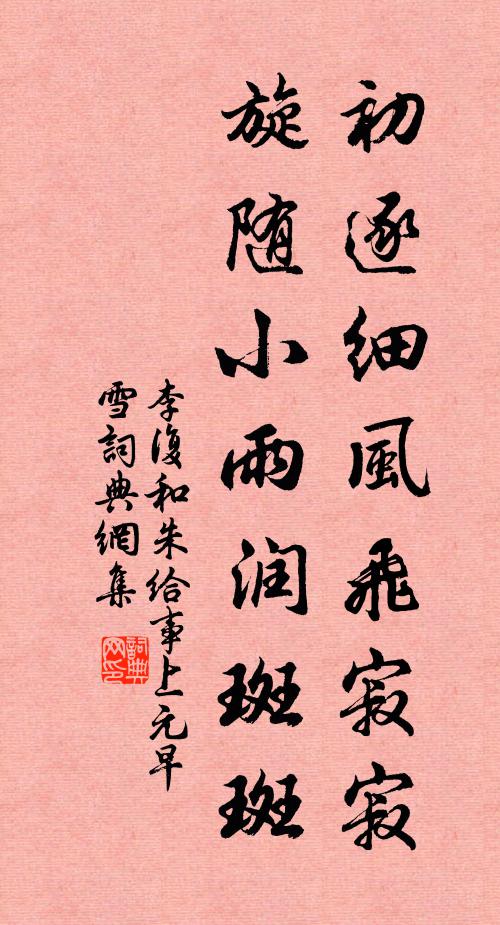 初逐细風飛寂寂
旋随小雨润斑斑
李復和朱给事上元早
雪詞典網集
詞典
网印